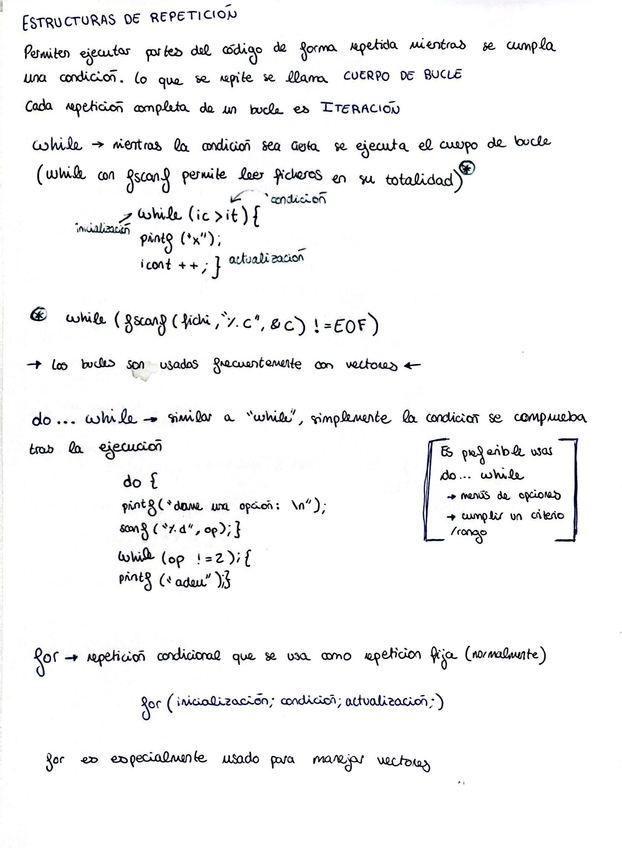 ESTRUCTURAS DE REPETICIÓN
Permiten ejecutar partes del código de forma repetida mientras se cumpla
una condición. Lo que se repite se llama CUERPO DE BUCLE
Cada repetición completa de un bucle es ITERACIÓN
while → mientras la condición sea cierta se ejecuta el cuerpo de bucle
(while con fscanf permite leer ficheros en su totalidad) *
condición
while (ic > it) {
inicialización
printf ("x");
icont ++; } actualización
* while (fscanf (fichi, "%c", &c) != EOF)
→ Los bucles son usados frecuentemente con vectores ←
do ... while → similar a "while", simplemente la condición se comprueba
tras la ejecución
do {
printf ("dame una opción: \n");
scanf ("%d", op); }
while (op != 2); {
printf ("adeu"); }
Es preferible usar
do ... while
→ menús de opciones
→ cumplir un criterio
/rango
for → repetición condicional que se usa como repetición fija (normalmente)
for (inicialización; condición; actualización;)
for es especialmente usado para manejar vectores